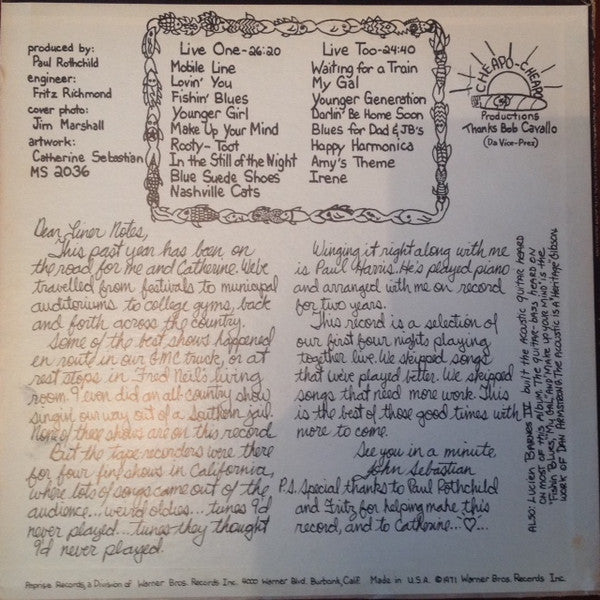 produced by:
Paul Rothchild
engineer:
Fritz Richmond
cover photo:
Jim Marshall
artwork:
Catherine Sebastian
MS 2036
Live One-26:20
Mobile Line
Lovin' You
Fishin' Blues
Younger Girl
Make Up Your Mind
Rooty-Toot
In the Still of the Night
Blue Suede Shoes
Nashville Cats
Live Too-24:40
Waiting for a Train
My Gal
Younger Generation
Darlin' Be Home Soon
Blues for Dad & JB's
Happy Harmonica
Amy's Theme
Irene
CHEAPO-CHEAPO
Productions
Thanks Bob Cavallo
(Da Vice-Prez)
Dear Liner Notes,
This past year has been on
the road for me and Catherine. We've
travelled from festivals to municipal
auditoriums to college gyms, back
and forth across the country.
Some of the best shows happened
en route in our GMC truck, or at
rest stops in Fred Neil's living
room. I even did an all-country show
singin' our way out of a Southern jail.
None of these shows are on this record
But the tape-recorders were there
for four fine shows in California,
where lots of songs came out of the
audience... weird oldies... tunes I'd
never played... tunes they thought
I'd never played.
Winging it right along with me
is Paul Harris. He's played piano
and arranged with me on record
for two years.
This record is a selection of
our first four nights playing
together live. We skipped songs
that we've played better. We skipped
songs that need more work. This
is the best of those good times with
more to come.
See you in a minute
John Sebastian
P.S. Special thanks to Paul Rothchild
and Fritz for helping make this
record, and to Catherine...♡...
ALSO: LUCIEN BARNES IV built the ACOUSTIC guitar HEARD
ON MOST OF this ALBUM. THE guitar-bass HEARD ON
"Fishin' Blues," "MY GAL," AND "MAKE UP YOUR MIND" IS THE
WORK OF DAN ARMSTRONG. THE ACOUSTIC IS A "HERITAGE" GIBSON.
Reprise Records, a Division of Warner Bros. Records Inc. 4000 Warner Blvd. Burbank, Calif. Made in U.S.A. ©1971 Warner Bros. Records Inc.